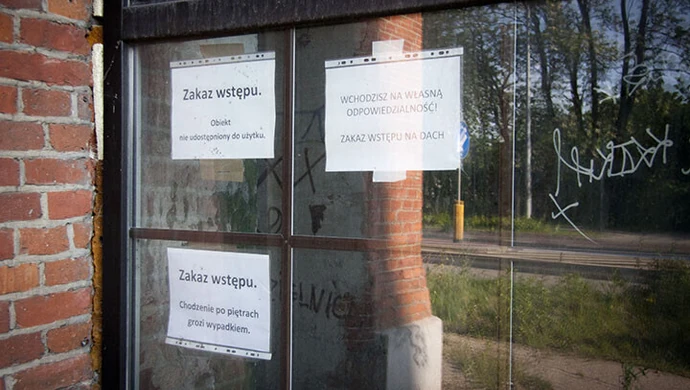 Zakaz wstępu.
Obiekt
nie udostępniony do użytku.
WCHODZISZ NA WŁASNĄ
ODPOWIEDZIALNOŚĆ!
ZAKAZ WSTĘPU NA DACH
Zakaz wstępu.
Chodzenie po piętrach
grozi wypadkiem.